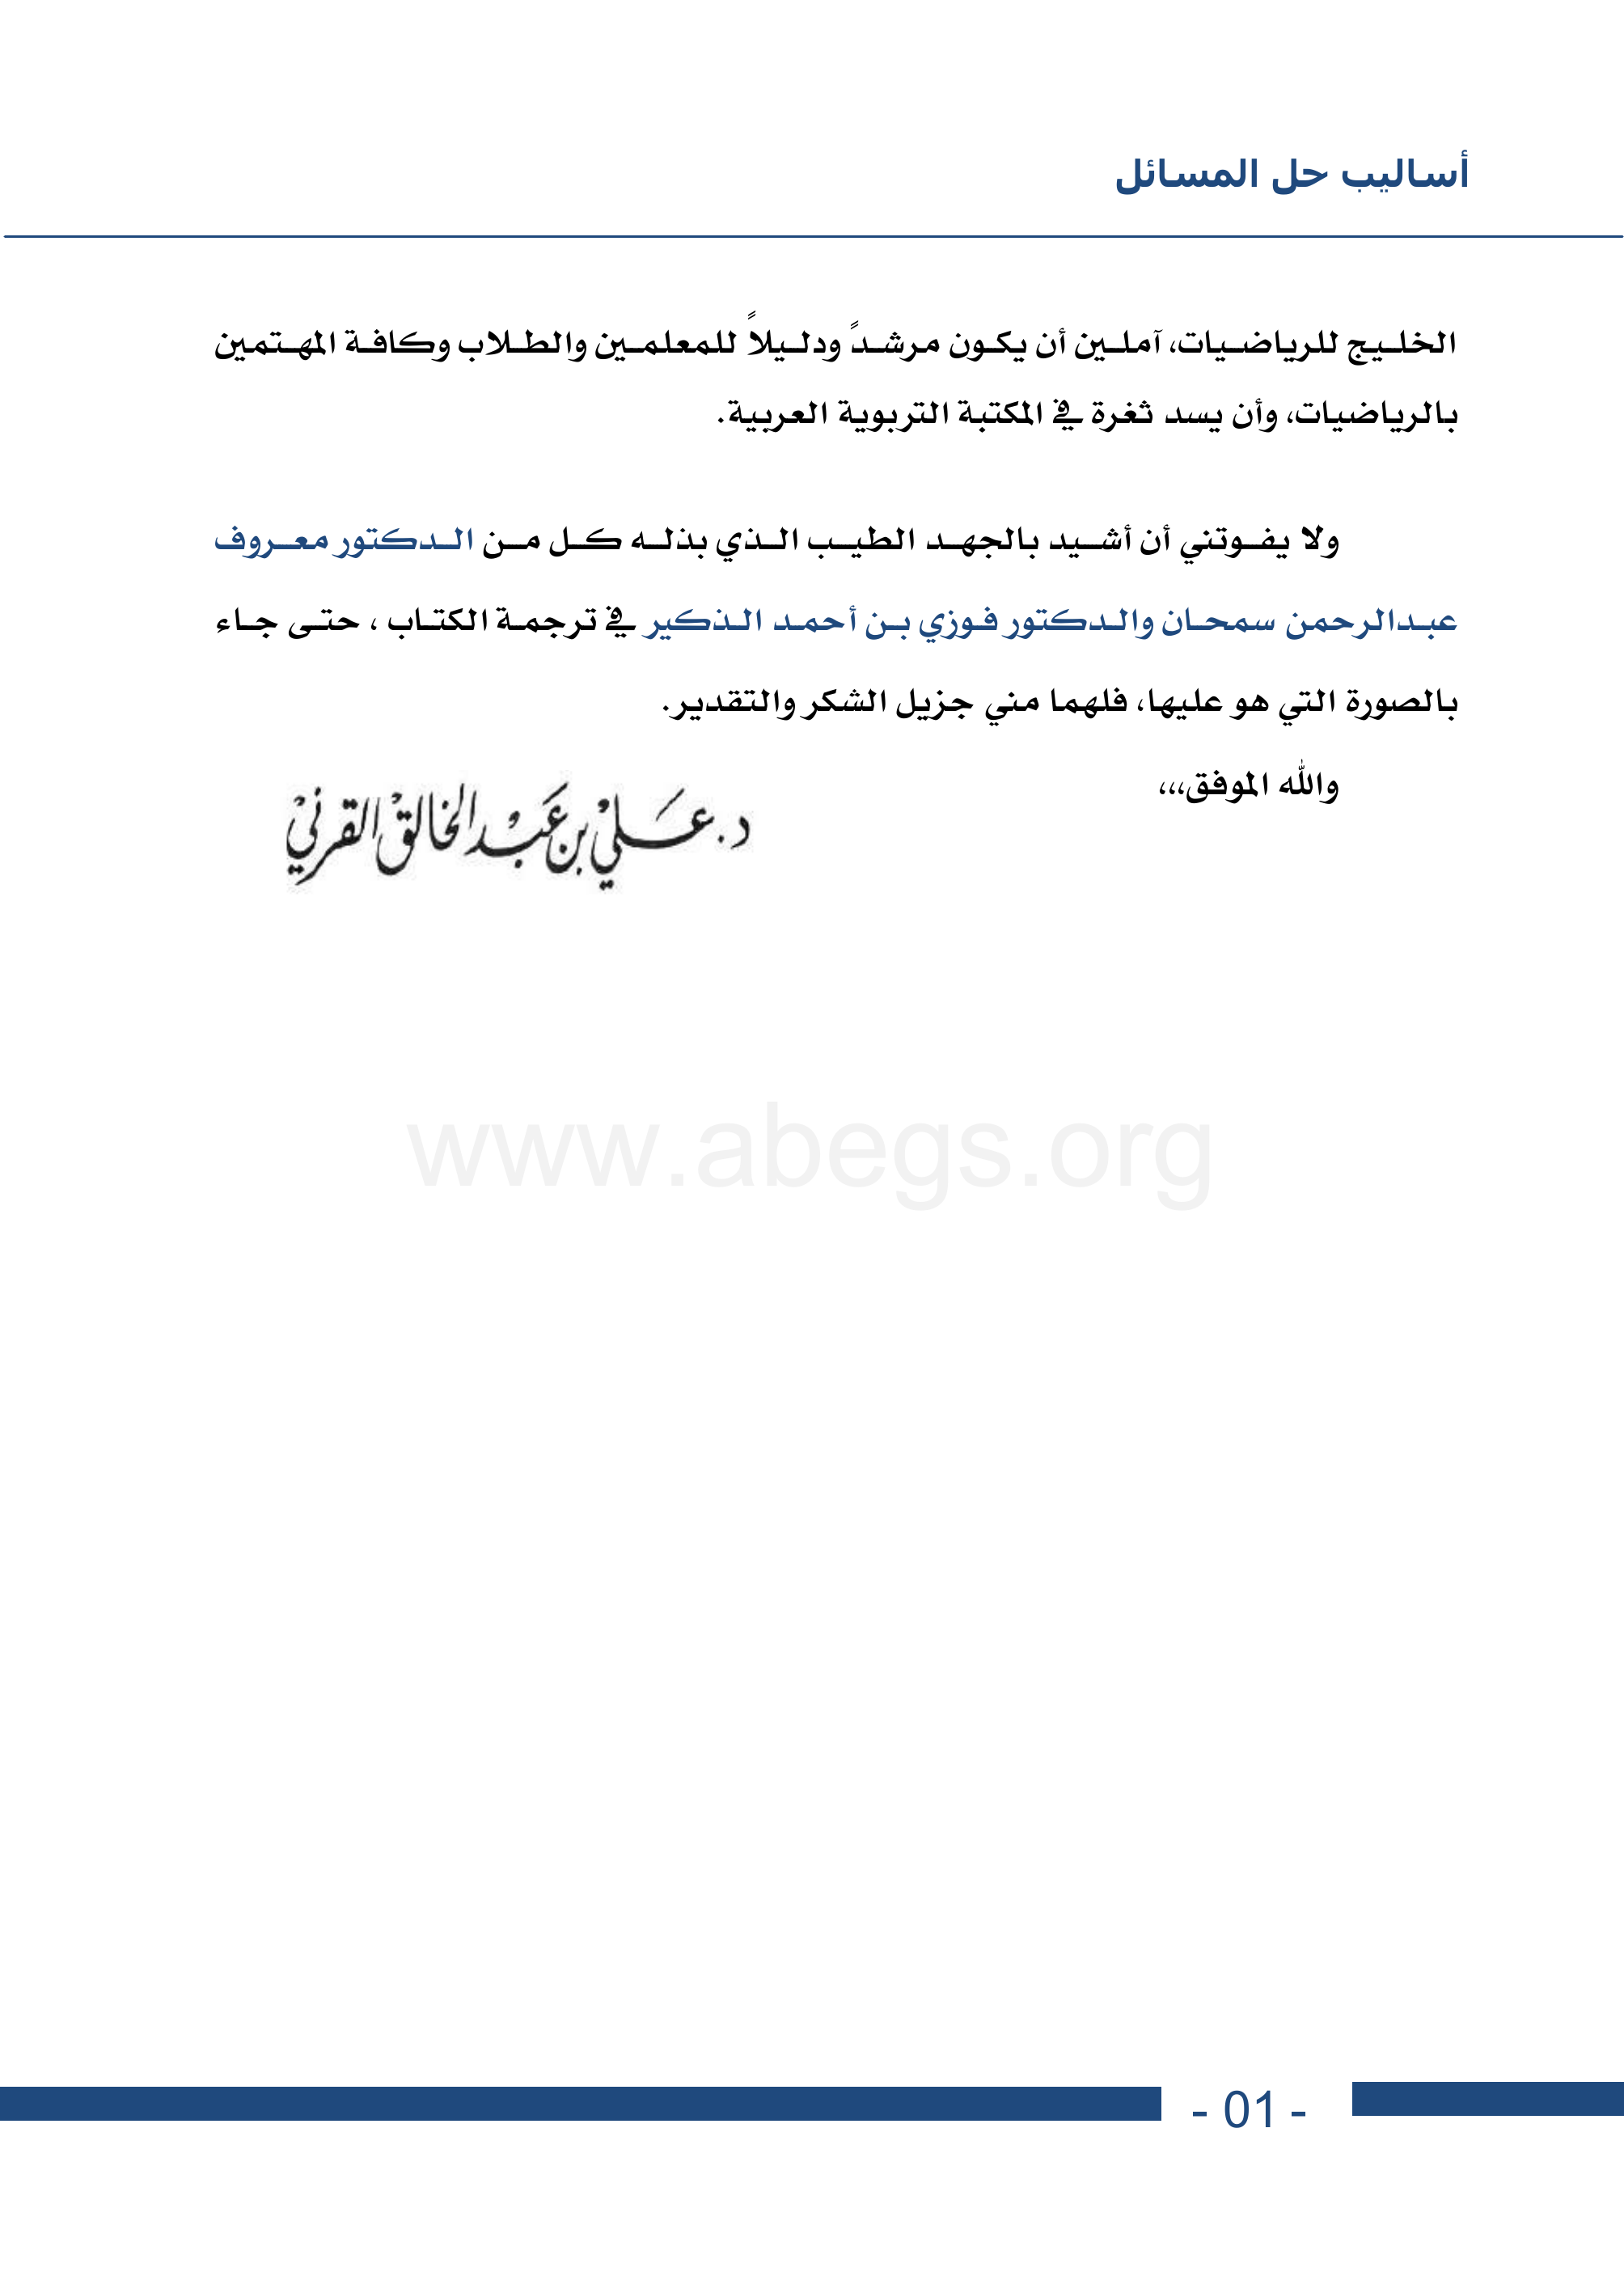 أساليب حل المسائل
الخليج للرياضيات، آملين أن يكون مرشدً ودليلاً للمعلمين والطلاب وكافة المهتمين
بالرياضيات، وأن يسد ثغرة في المكتبة التربوية العربية.
ولا يفوتني أن أشيد بالجهد الطيب الذي بذله كل من الدكتور معروف
عبدالرحمن سمحان والدكتور فوزي بن أحمد الذكير في ترجمة الكتاب ، حتى جاء
بالصورة التي هو عليها، فلهما مني جزيل الشكر والتقدير.
والله الموفق،،،
د. عَلي بن عَبد الخالق القرني
www.abegs.org
- 01 -